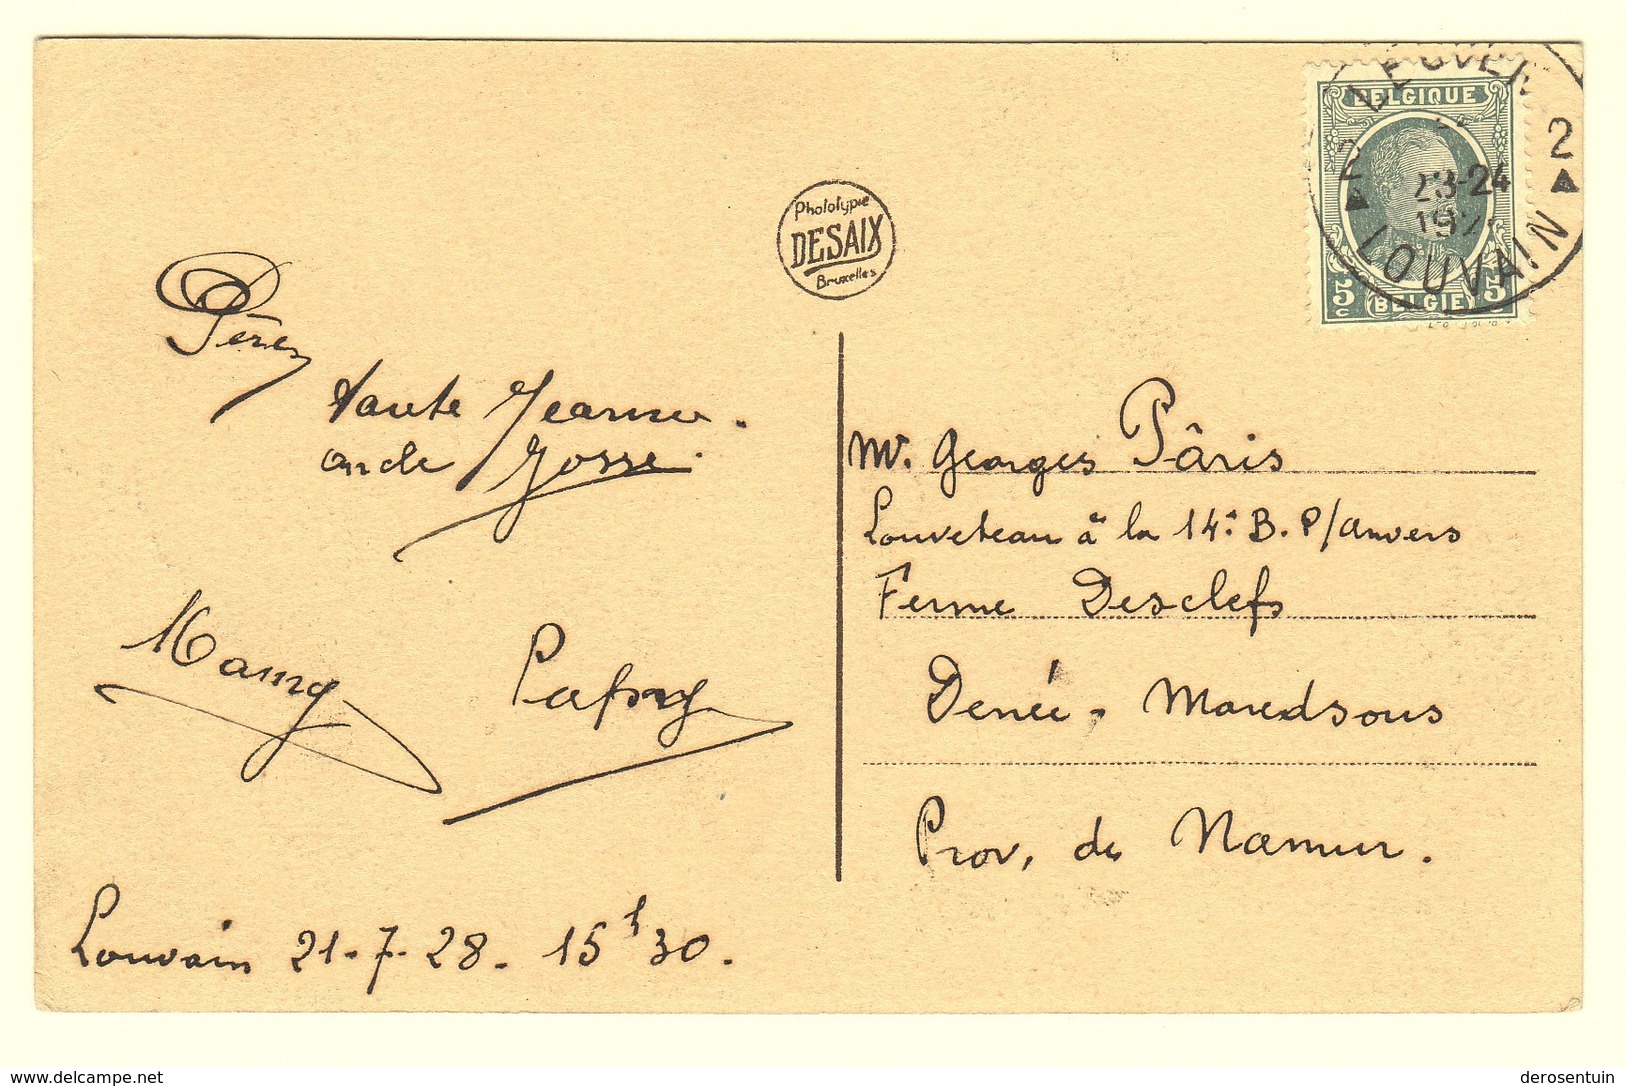 Père
tante Jeanne.
oncle Josse.
Mamy Papy
Louvain 21-7-28. 15h30.
Phototypie
DESAIX
Bruxelles
LEUVEN
2 2
23-24
192
LOUVAIN
BELGIQUE
5c 5
BELGIE
Mr. Georges Pâris
Louveteau à la 14e B. P/Anvers
Ferme Desclefs
Denée - Maredsous
Prov. de Namur.
www.delcampe.net
derosentuin